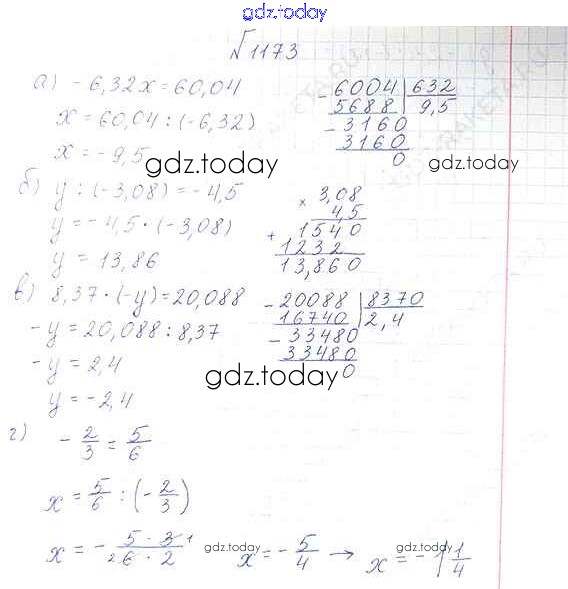 gdz.today
№1173
а) - 6,32x = 60,04
x = 60,04 : (-6,32)
x = - 9,5
- 6004 | 632
5688 | 9,5
- 3160
3160
0
gdz.today
gdz.today
б) y : (-3,08) = - 4,5
y = - 4,5 · (-3,08)
y = 13,86
× 3,08
4,5
+ 1540
1232
13,860
в) 8,37 · (-y) = 20,088
-y = 20,088 : 8,37
-y = 2,4
y = -2,4
- 20088 | 8370
16740 | 2,4
- 33480
33480
0
gdz.today
г) - 2/3 = 5/6
x = 5/6 : (- 2/3)
x = - 5 · 3 1 / 2 6 · 2
gdz.today
x = - 5/4 → x = - 1 1/4
gdz.today